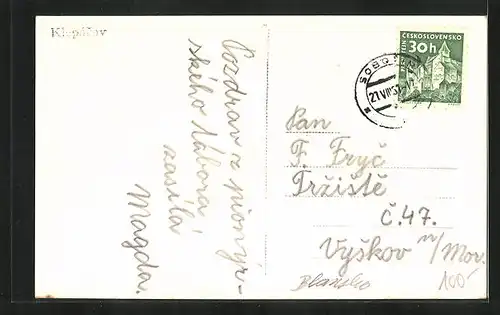 Klepáčov
Pozdrav z pionýr-
ského tábora
zasílá
Magda.
ČESKOSLOVENSKO
30h
Pan
F. Fryč
Tržiště
č.47.
Vyškov n/Mor.
Blansko
100